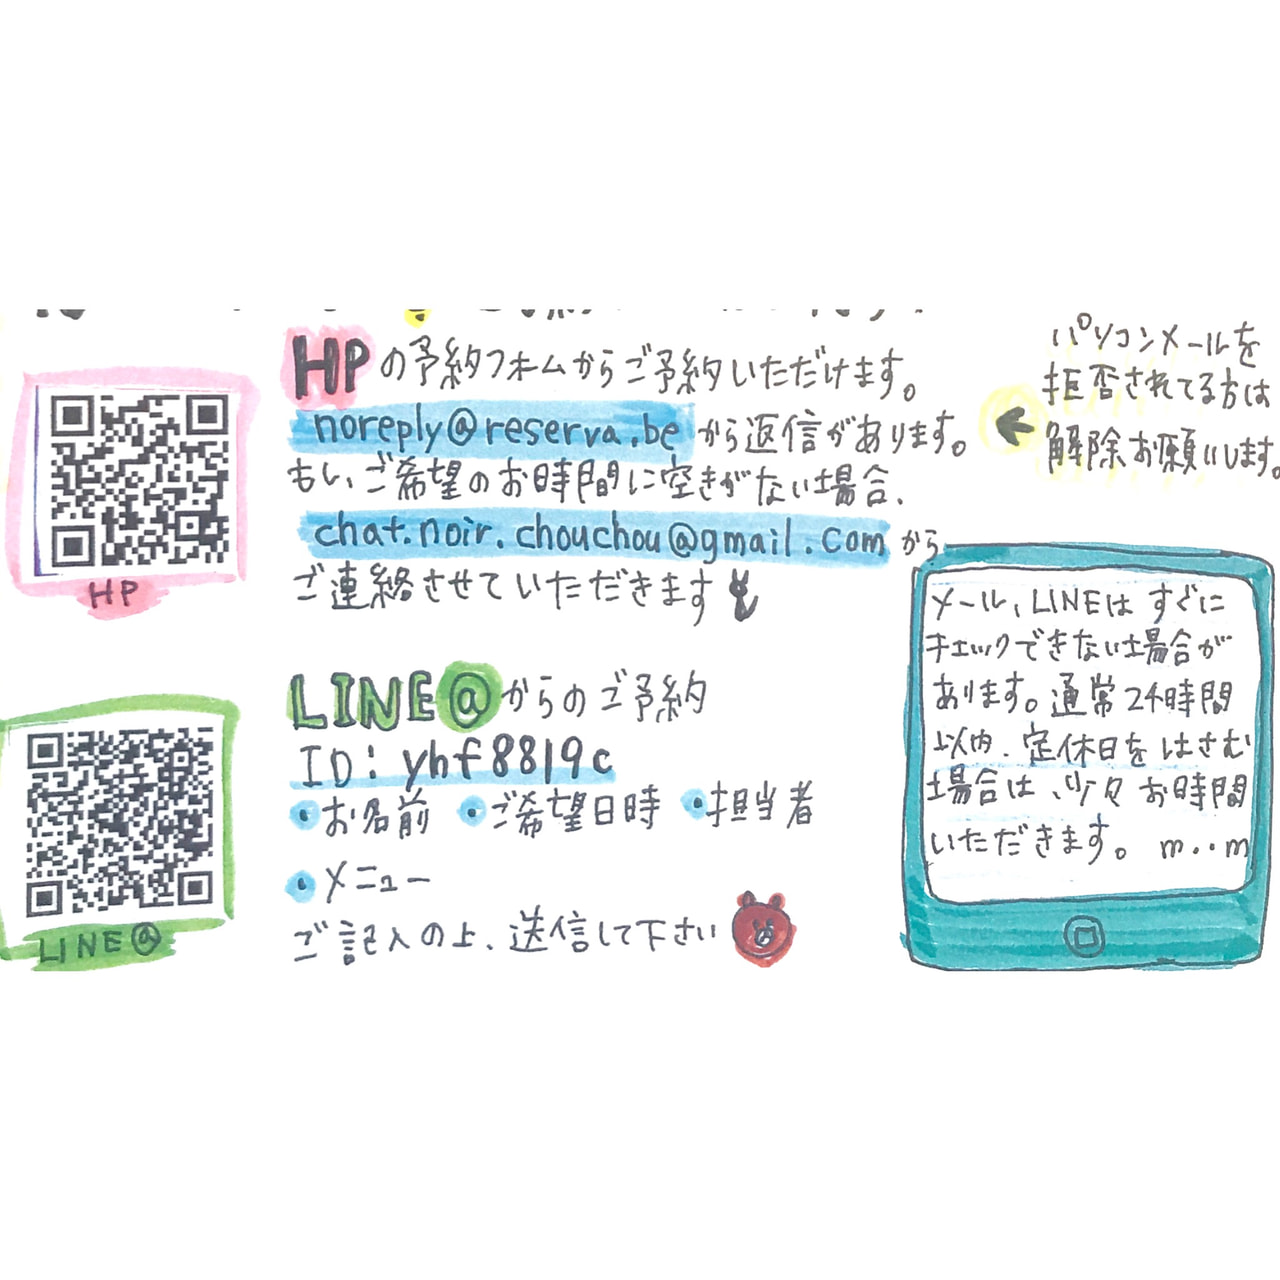 HPの予約フォームからご予約いただけます。
noreply@reserva.be から返信があります。
もし、ご希望のお時間に空きがない場合、
chat.noir.chouchou@gmail.com から
ご連絡させていただきます
パソコンメールを
拒否されてる方は
解除お願いします。
HP
LINE@からのご予約
ID:yhf8819c
・お名前 ・ご希望日時 ・担当者
・メニュー
ご記入の上、送信して下さい
LINE@
メール、LINEは すぐに
チェックできない場合が
あります。通常24時間
以内、定休日をはさむ
場合は、少々お時間
いただきます。 m..m